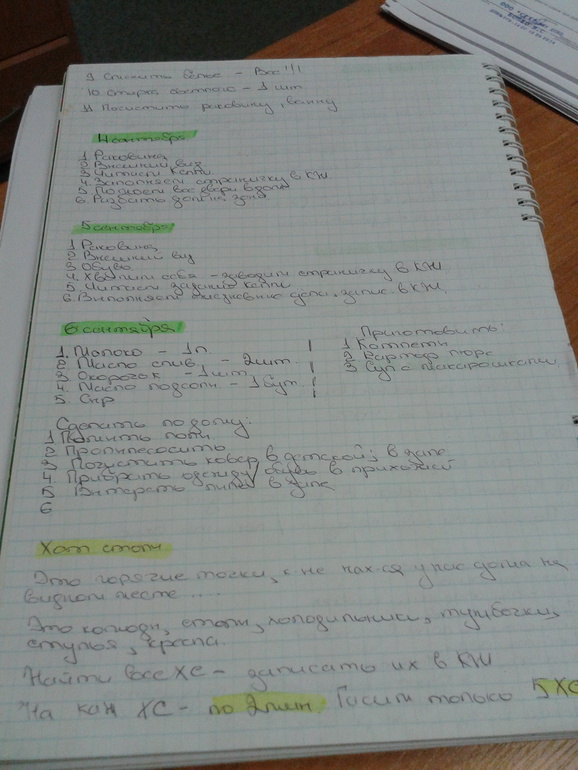 9 Сменить бельё - Все!!!
10 стирка - 1 шт.
11 Почистить раковину, ванну
4 сентября
1 Раковина
2 Внешний вид
3 Читаем Келли
4. Заполняем страничку в КЖ
5. все двери
6. Разбить дом на зоны
5 сентября
1 Раковина
2 Внешний вид
3 Обувь
4. Хвалим себя - заводим страничку в КЖ
5. Читаем задания Келли
6. Выполняем ежедневные дела, запис. в КЖ.
6 сентября
1. Молоко - 1 л
2 Масло слив. - 2 шт.
3 Окорочок - 1 шт.
4. Масло подсолн - 1 бут.
5. Сыр
Приготовить:
1 Котлеты
2 Картоф пюре
3 Суп с макарошками
Сделать по дому:
1 Помыть полы
2 Пропылесосить
3 Почистить ковёр в детской; в зале
4 Прибрать одежду/обувь в прихожей
5 Вытереть пыль в зале
6
Хот споты
Это горячие точки, к-е нах-ся у нас дома на
видном месте ....
Это комоды, столы, холодильники, тумбочки,
стулья, кресла.
Найти все ХС - записать их в КЖ
На каж ХС - по 2 мин. Гасим только 5 ХС